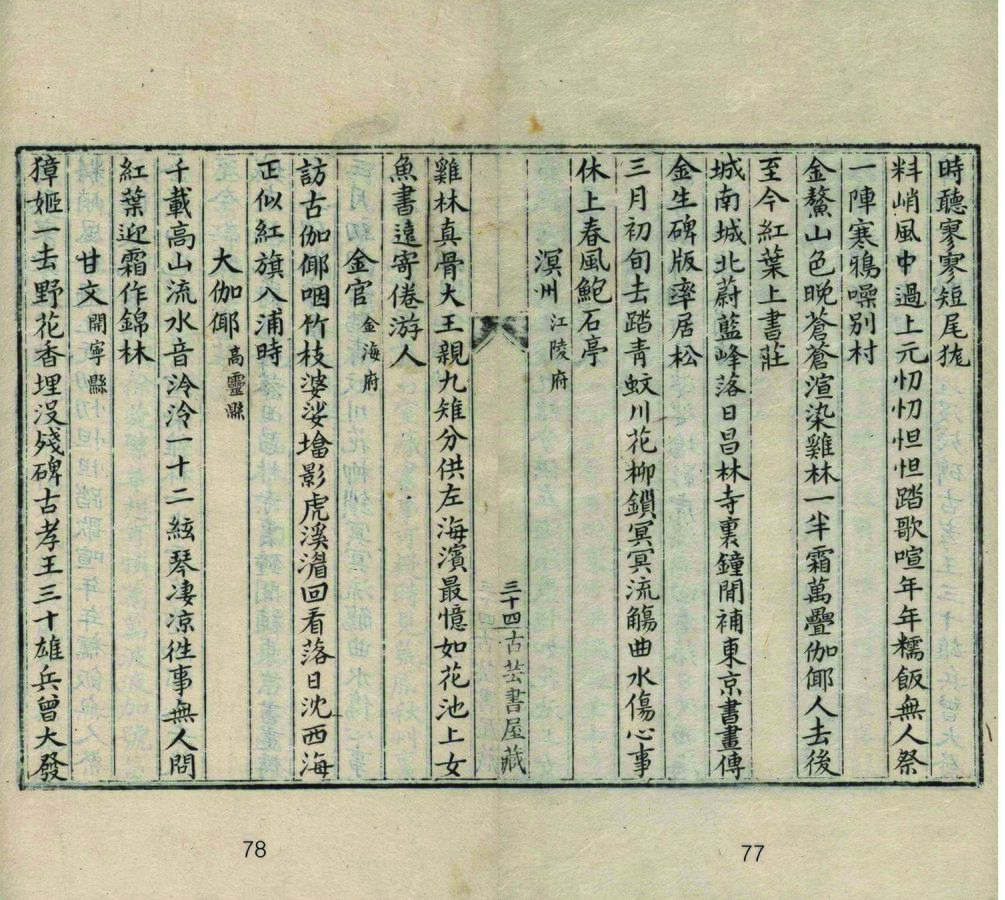 時聽寥寥短尾狵
料峭風中過上元忉忉怛怛踏歌喧年年糯飯無人祭
一陣寒鴉噪別村
金鰲山色晚蒼蒼渲染雞林一半霜萬疊伽倻人去後
至今紅葉上書莊
城南城北蔚藍峰落日昌林寺裏鐘閒補東京書畫傳
金生碑版率居松
三月初旬去踏青蚊川花柳鎖冥冥流觴曲水傷心事
休上春風鮑石亭
溟州 江陵府
三十四古芸書屋藏
雞林真骨大王親九雉分供左海濱最憶如花池上女
魚書遠寄倦游人
金官 金海府
訪古伽倻咽竹枝婆娑塔影虎溪湄回看落日沈西海
正似紅旗入浦時
大伽倻 高靈縣
千載高山流水音泠泠一十二絃琴淒涼徃事無人問
紅葉迎霜作錦林
甘文 開寧縣
獐姬一去野花香埋沒殘碑古孝王三十雄兵曾大發
78
77